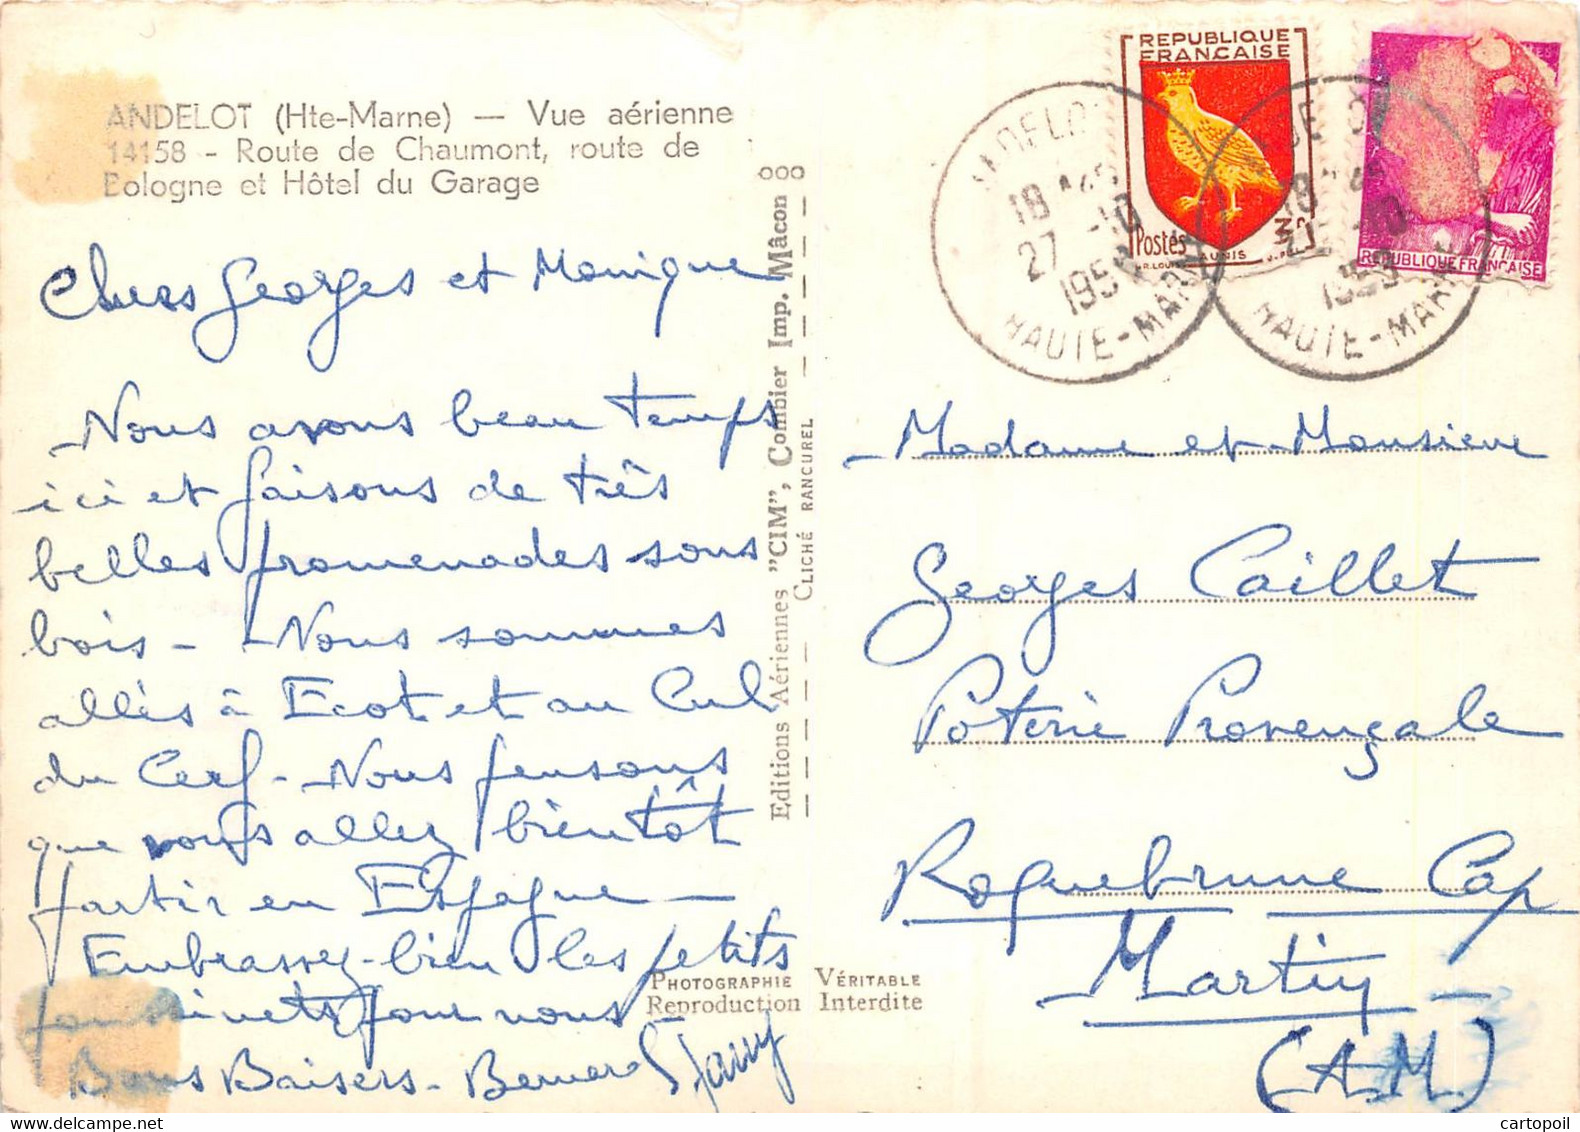 ANDELOT (Hte-Marne) — Vue aérienne
14158 - Route de Chaumont, route de
Bologne et Hôtel du Garage
Chers Georges et Monique
Nous avons beau temps
ici et faisons de très
belles promenades sous
bois - Nous sommes
allés à Ecot et au Cul
du Cerf - Nous pensons
que vous allez bientôt
partir en Espagne -
Embrassez-bien les petits
pour nous -
Bons Baisers - Bernard Fany
Editions Aériennes "CIM", Combier Imp. Mâcon
CLICHÉ RANCUREL
PHOTOGRAPHIE VÉRITABLE
Reproduction Interdite
REPUBLIQUE
FRANÇAISE
Postes
AUNIS
REPUBLIQUE FRANÇAISE
ANDELOT
18
27 -10
1955
HAUTE-MARNE
18
-10
1955
HAUTE-MARNE
Madame et Monsieur
Georges Caillet
Poterie Provençale
Roquebrune Cap
Martin -
(A.M.)
cartopoil